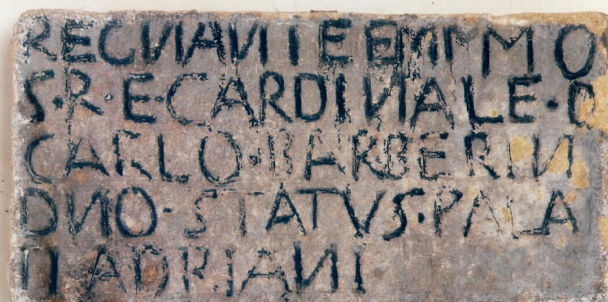 REGNAVITE EMMO
S·R·E·CARDINALE·D
CARLO·BARBERIN
DNO·STATVS·PALA
TI ADRIANI